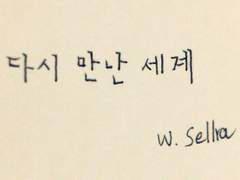 다시 만난 세계
W. Sellra